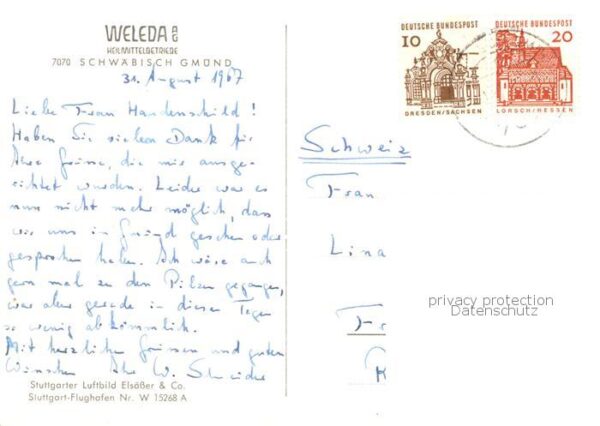 WELEDA AG
HEILMITTELBETRIEBE
7070 SCHWÄBISCH GMÜND
31. August 1967
Liebe Frau Handenschild!
Haben Sie vielen Dank für
Ihre Grüsse, die mir ausge-
richtet wurden. Leider war es
nun nicht mehr möglich, dass
wir uns in Gmünd gesehen oder
gesprochen haben. Ich wäre auch
gern mal zu den Pilzen gegangen,
war aber gerade in diesen Tagen
so wenig abkömmlich.
Mit herzlichen Grüssen und guten
Wünschen Ihr W. Schneider
Stuttgarter Luftbild Elsäßer & Co.
Stuttgart-Flughafen Nr. W 15268 A
DEUTSCHE BUNDESPOST
10
DRESDEN/SACHSEN
DEUTSCHE BUNDESPOST
20
LORSCH/HESSEN
Schweiz
Frau
Lina
privacy protection
Datenschutz